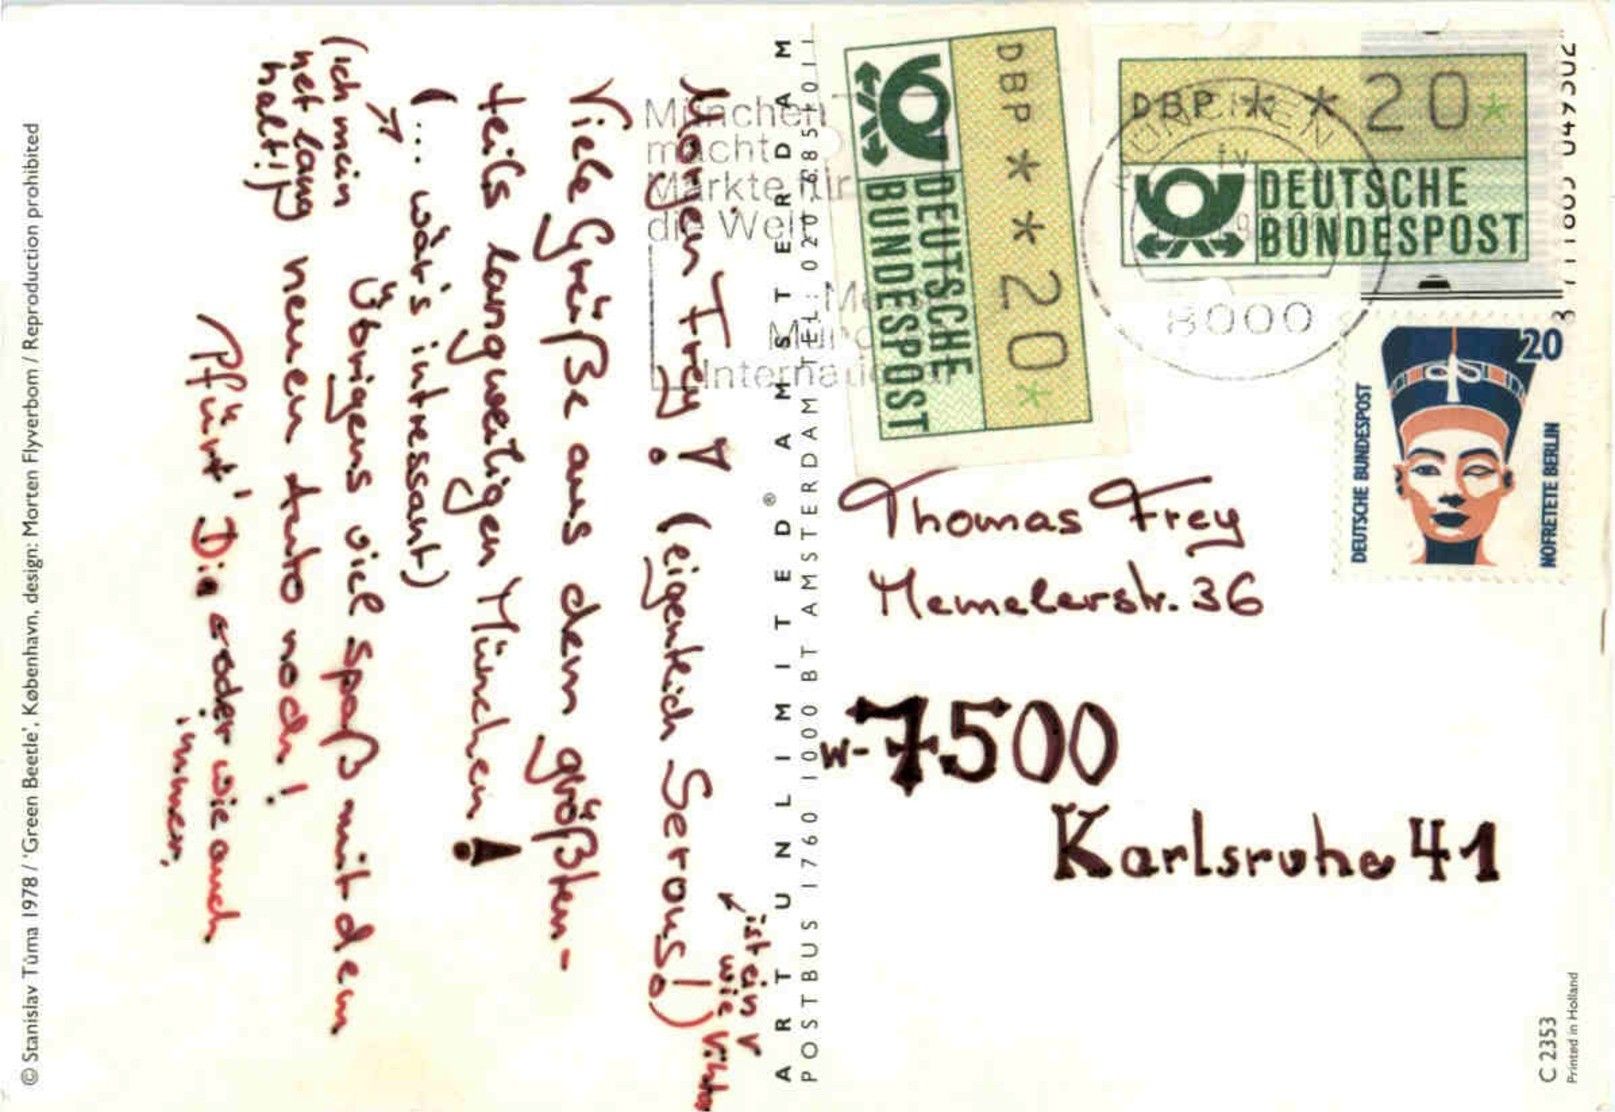 Morgen Frey! (eigentlich Servus!)
ist ein V
wie
Viele Grüße aus dem größten-
teils langweiligen München!
(... wär's intressant)
Übrigens viel Spaß mit dem
neuen Auto noch!
(ich mein
net lang
haltig
Pfürt' Die oder wie auch
immer.
Thomas Frey
Memelerstr. 36
W-7500
Karlsruhe 41
ART UNLIMITED® AMSTERDAM
POSTBUS 1760 1000 BT AMSTERDAM TEL:
© Stanislav Tůma 1978 / 'Green Beetle', København, design: Morten Flyverbom / Reproduction prohibited
C 2353
Printed in Holland
DBP * * 20*
DEUTSCHE
BUNDESPOST
DBP * * 20*
DEUTSCHE
BUNDESPOST
20
DEUTSCHE BUNDESPOST
NOFRETETE BERLIN
München
macht
Märkte für
die Welt
MÜNCHEN
8000